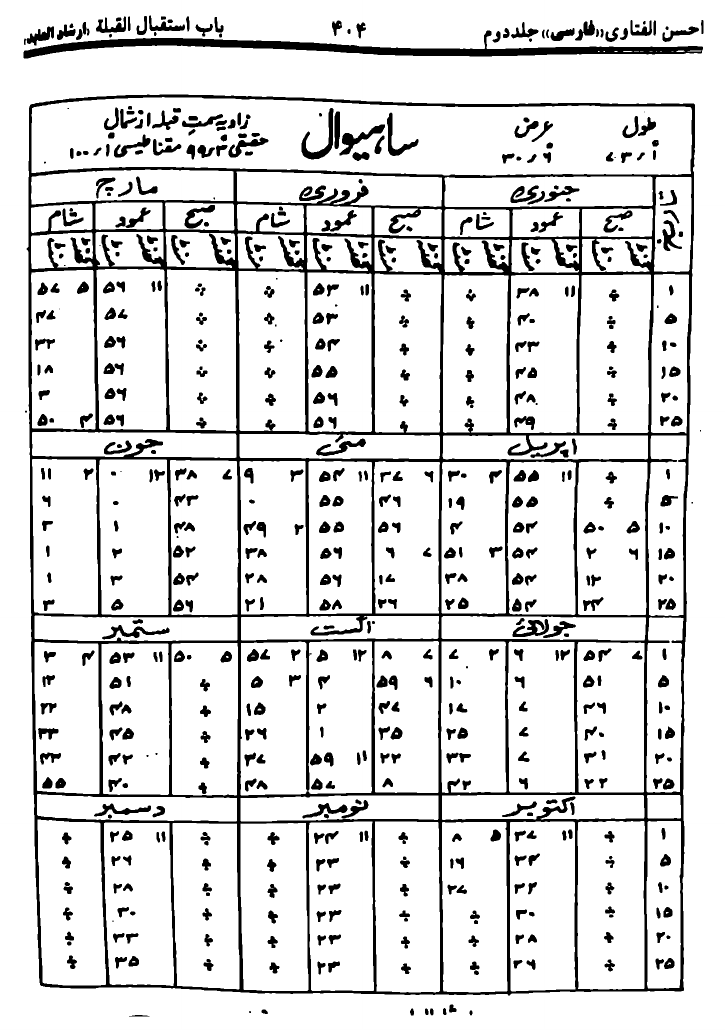 احسن الفتاوی ((فارسی)) جلد دوم ۴۰۴ باب استقبال القبلة
طول عرض ساہیوال زاویہ سمت قبلہ از شمال
۷۳٫۱ ۳۰٫۶ حقیقی ۹۹٫۳ مقناطیسی ۱۰۰٫۱
تاریخ جنوری فروری مارچ
صبح عمود شام صبح عمود شام صبح عمود شام
۱ ÷ ۱۱ ۳۸ ÷ ÷ ۱۱ ۵۳ ÷ ÷ ۱۱ ۵۶ ۵ ۵۷
۵ ÷ ۴۰ ÷ ÷ ۵۳ ÷ ÷ ۵۷ ۴۷
۱۰ ÷ ۴۳ ÷ ÷ ۵۴ ÷ ÷ ۵۶ ۳۲
۱۵ ÷ ۴۵ ÷ ÷ ۵۵ ÷ ÷ ۵۶ ۱۸
۲۰ ÷ ۴۸ ÷ ÷ ۵۶ ÷ ÷ ۵۶ ۳
۲۵ ÷ ۴۹ ÷ ÷ ۵۶ ÷ ÷ ۵۶ ۴ ۵۰
اپریل مئی جون
۱ ÷ ۱۱ ۵۵ ۴ ۳۰ ۶ ۳۷ ۱۱ ۵۴ ۳ ۹ ۷ ۳۸ ۱۲ ۰ ۲ ۱۱
۵ ÷ ۵۵ ۱۹ ۴۶ ۵۵ ۰ ۴۳ ۰ ۶
۱۰ ۵ ۵۰ ۵۴ ۴ ۵۶ ۵۵ ۲ ۴۹ ۴۸ ۱ ۳
۱۵ ۶ ۲ ۵۴ ۳ ۵۱ ۷ ۶ ۵۶ ۳۸ ۵۲ ۲ ۱
۲۰ ۱۲ ۵۴ ۳۸ ۱۷ ۵۶ ۲۸ ۵۴ ۳ ۱
۲۵ ۲۴ ۵۴ ۲۵ ۲۶ ۵۸ ۲۱ ۵۶ ۵ ۳
جولائی اگست ستمبر
۱ ۷ ۵۴ ۱۲ ۶ ۲ ۷ ۷ ۸ ۱۲ ۵ ۲ ۵۷ ۵ ۵۰ ۱۱ ۵۳ ۴ ۳
۵ ۵۱ ۶ ۱۰ ۶ ۵۹ ۴ ۳ ۵ ÷ ۵۱ ۱۲
۱۰ ۴۶ ۷ ۱۷ ۴۷ ۲ ۱۵ ÷ ۴۸ ۲۲
۱۵ ۴۰ ۷ ۲۵ ۳۵ ۱ ۲۶ ÷ ۴۵ ۳۳
۲۰ ۳۱ ۷ ۳۳ ۲۲ ۱۱ ۵۹ ۳۷ ÷ ۴۲ ۴۳
۲۵ ۲۲ ۶ ۴۲ ۸ ۵۷ ۴۸ ÷ ۴۰ ۵۵
اکتوبر نومبر دسمبر
۱ ÷ ۱۱ ۳۷ ۵ ۸ ÷ ۱۱ ۲۴ ÷ ÷ ۱۱ ۲۵ ÷
۵ ÷ ۳۴ ۱۶ ÷ ۲۳ ÷ ÷ ۲۶ ÷
۱۰ ÷ ۳۲ ۲۷ ÷ ۲۳ ÷ ÷ ۲۸ ÷
۱۵ ÷ ۳۰ ÷ ÷ ۲۳ ÷ ÷ ۳۰ ÷
۲۰ ÷ ۲۸ ÷ ÷ ۲۳ ÷ ÷ ۳۳ ÷
۲۵ ÷ ۲۶ ÷ ÷ ۲۳ ÷ ÷ ۳۵ ÷